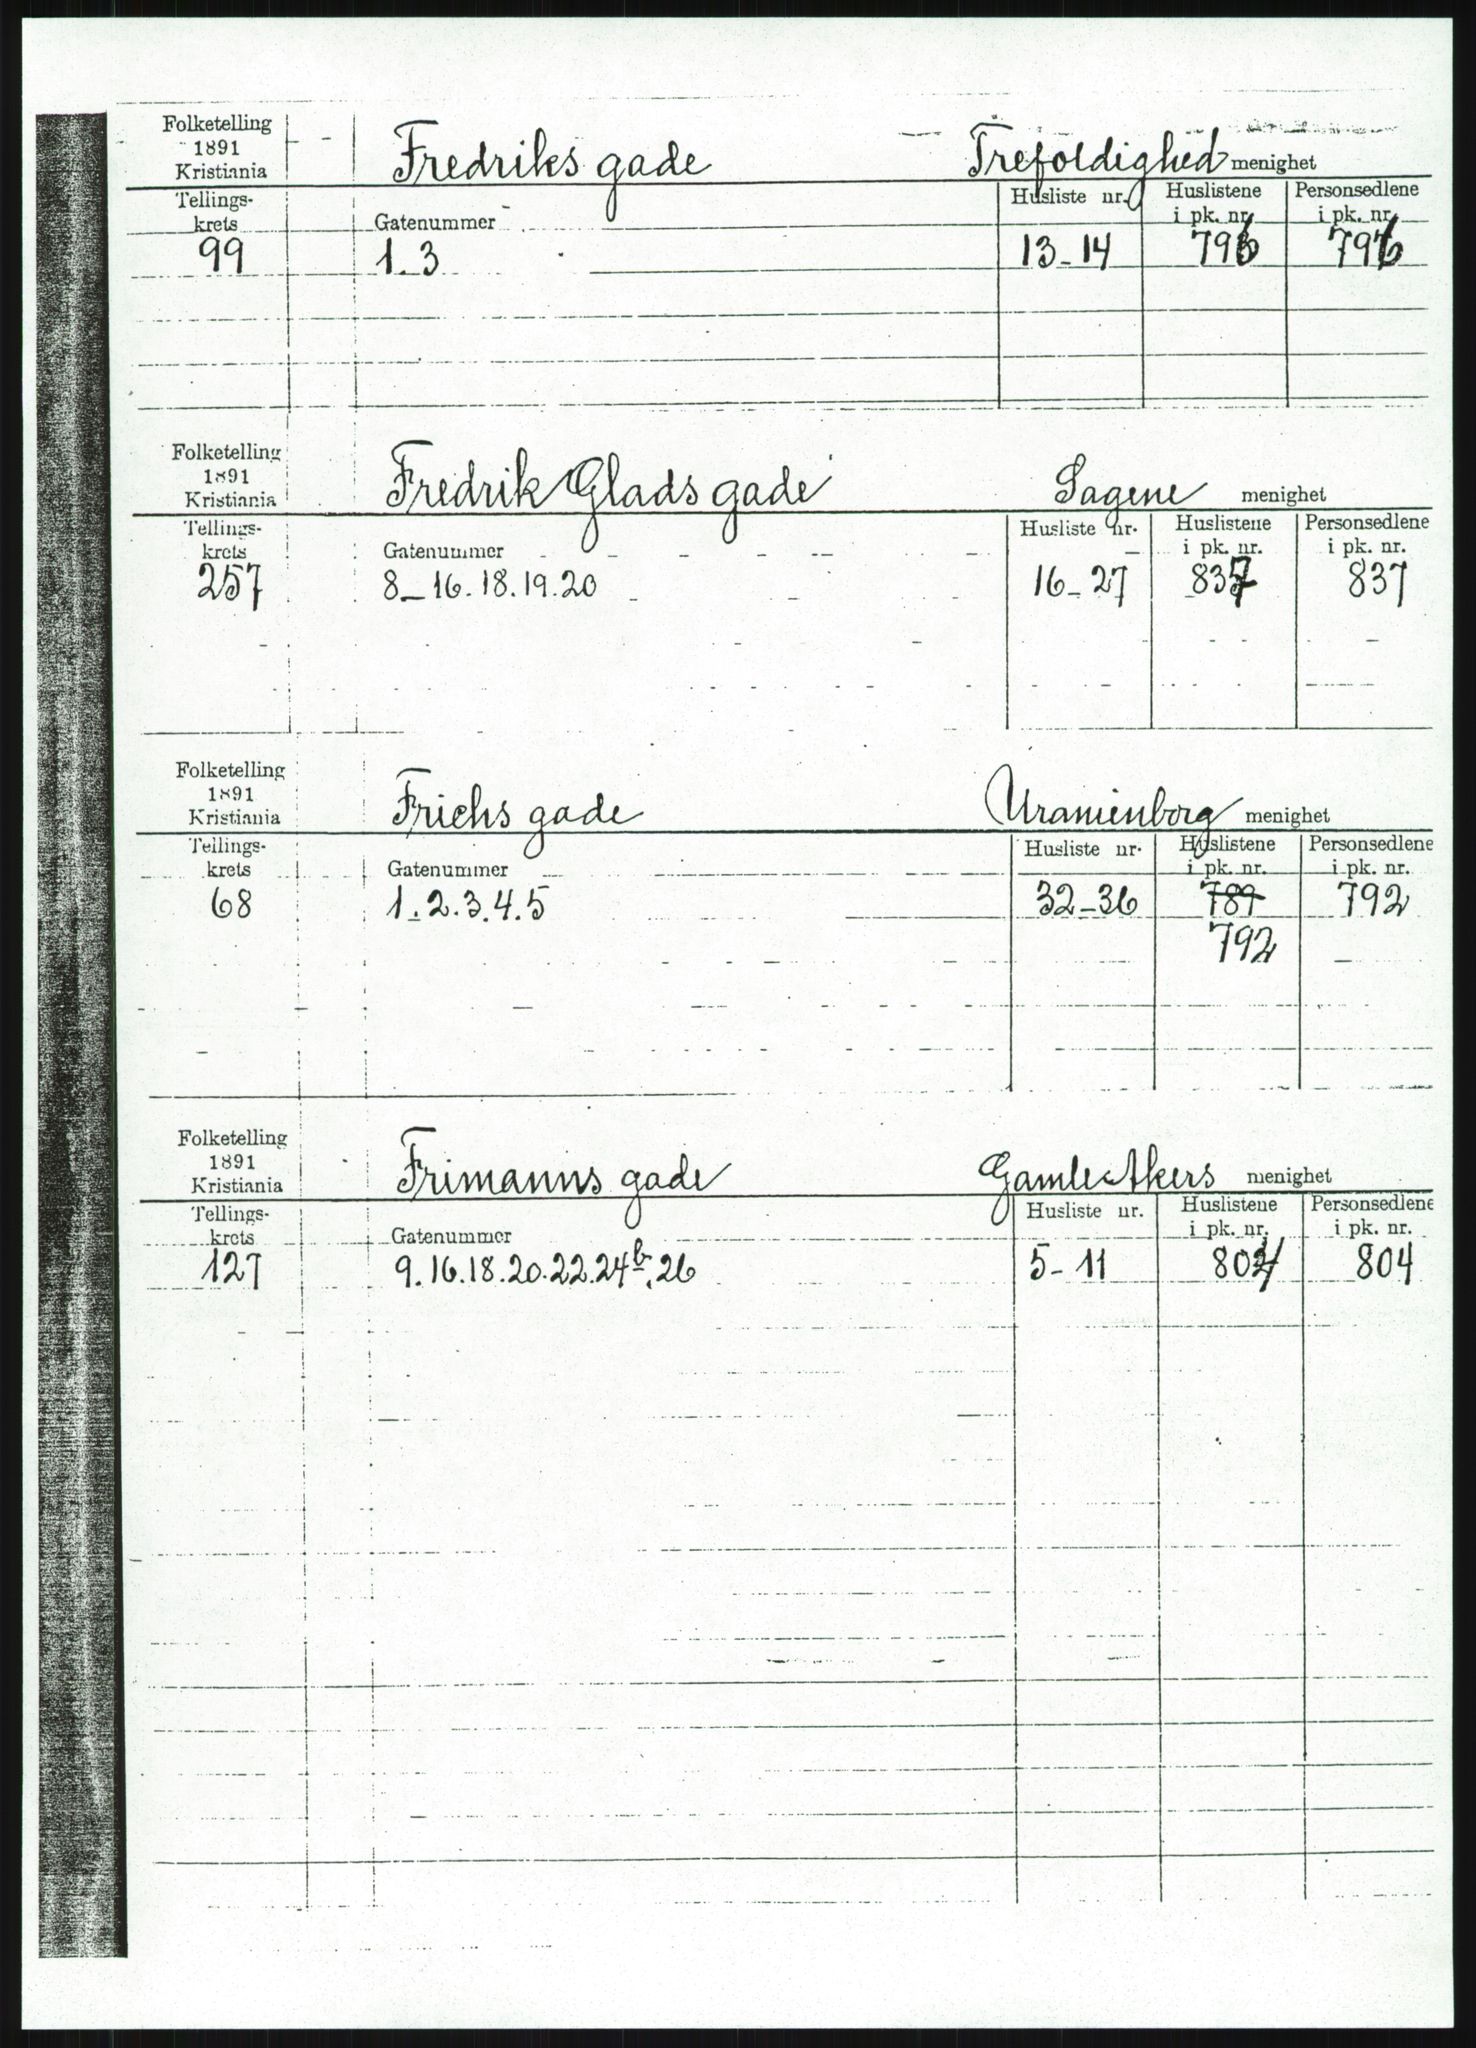 Folketelling
1891
Kristiania
Fredriks gade
Trefoldighed menighet
Tellings-
krets
Gatenummer
Husliste nr.
Huslistene
i pk. nr.
Personsedlene
i pk. nr.
99
1.3
13-14
796
796
Folketelling
1891
Kristiania
Fredrik Glads gade
Sagene menighet
Tellings-
krets
Gatenummer
Husliste nr.
Huslistene
i pk. nr.
Personsedlene
i pk. nr.
257
8-16.18.19.20
16-27
837
837
Folketelling
1891
Kristiania
Frichs gade
Uranienborg menighet
Tellings-
krets
Gatenummer
Husliste nr.
Huslistene
i pk. nr.
Personsedlene
i pk. nr.
68
1.2.3.4.5
32-36
789
792
792
Folketelling
1891
Kristiania
Frimanns gade
Gamle Akers menighet
Tellings-
krets
Gatenummer
Husliste nr.
Huslistene
i pk. nr.
Personsedlene
i pk. nr.
127
9.16.18.20.22.24b.26
5-11
804
804